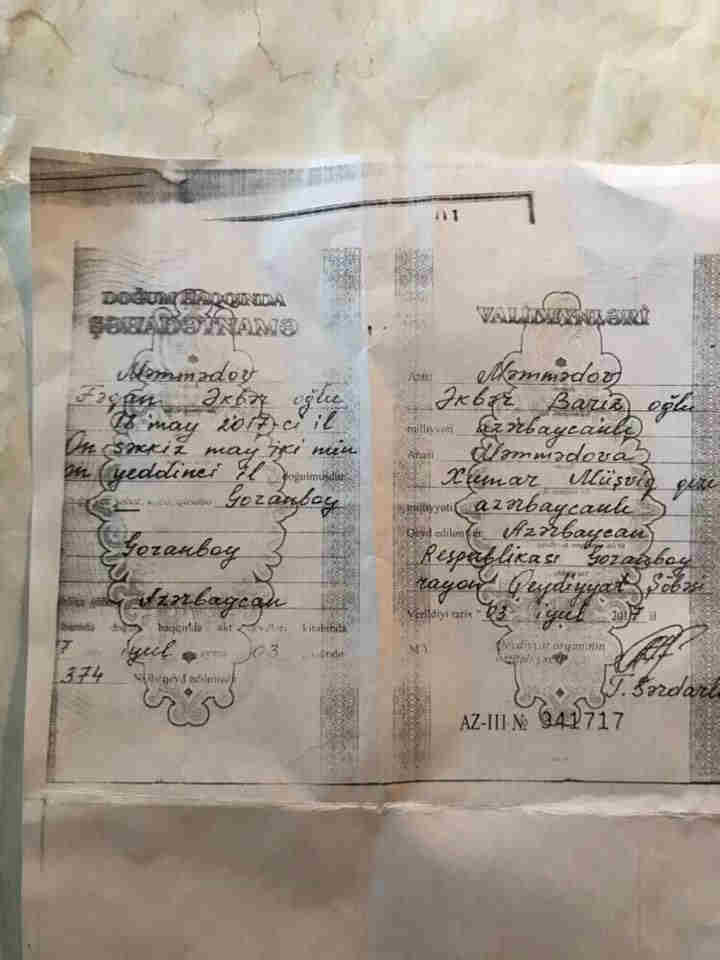 DOĞUM HAQQINDA
ŞƏHADƏTNAMƏ
Məmmədov
Əkbər oğlu
18 may 2017-ci il
On səkkiz may iki min
on yeddinci il doğulmuşdur
Goranboy
Goranboy
Azərbaycan
haqqında akt kitabında
iyul 03
374 №li qeyd edilmişdir
VALİDEYNLƏRİ
Atası Məmmədov
Əkbər Bariz oğlu
milliyyəti azərbaycanlı
Anası Məmmədova
Xumar Müşviq qızı
milliyyəti azərbaycanlı
Qeyd edilən yer Azərbaycan
Respublikası Goranboy
rayon Qeydiyyat Şöbəsi
Verildiyi tarix "03 iyul 2017 il
M.Y. Qeydiyyat orqanının
AZ-III № 941717